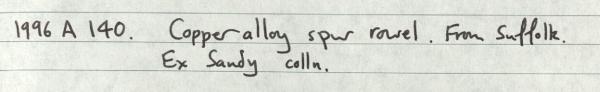 1996 A 140. Copper alloy spur rowel. From Suffolk.
Ex Sandy colln.